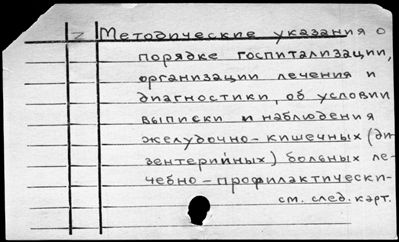 Методические указания о
порядке госпитализации,
организации лечения и
диагностики, об условии
выписки и наблюдения
желудочно-кишечных (ди-
зентерийных) больных ле-
чебно-профилактически-
см. след. карт.